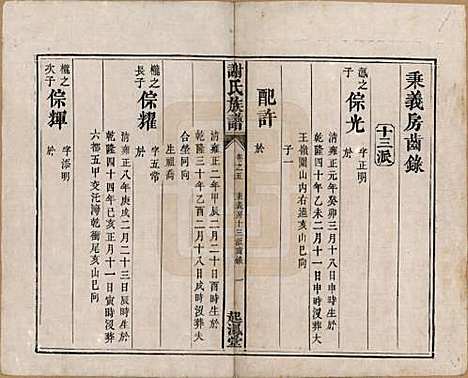 秉義房齒錄
十三派
瀛之子 倧光
字正明
於
清雍正元年癸卯三月十八日申時生於
乾隆四十年乙未二月十一日申時歿葬
王嶺園山內右邊亥山巳向
子一
配許
於
謝氏族譜
卷之五
秉義房十三派齒錄 一
起鳳堂
瀧之長子 倧耀
字五常
於
清雍正二年甲辰二月 日 時生於
乾隆三十年乙酉二月十八日戌時歿葬大
合坐同向
生殂喬
瀧之次子 倧輝
字添明
於
清雍正八年庚戌二月二十三日辰時生於
乾隆四十四年己亥十月十一日寅時歿葬
六都五甲交陀濤乾衝尾亥山巳向